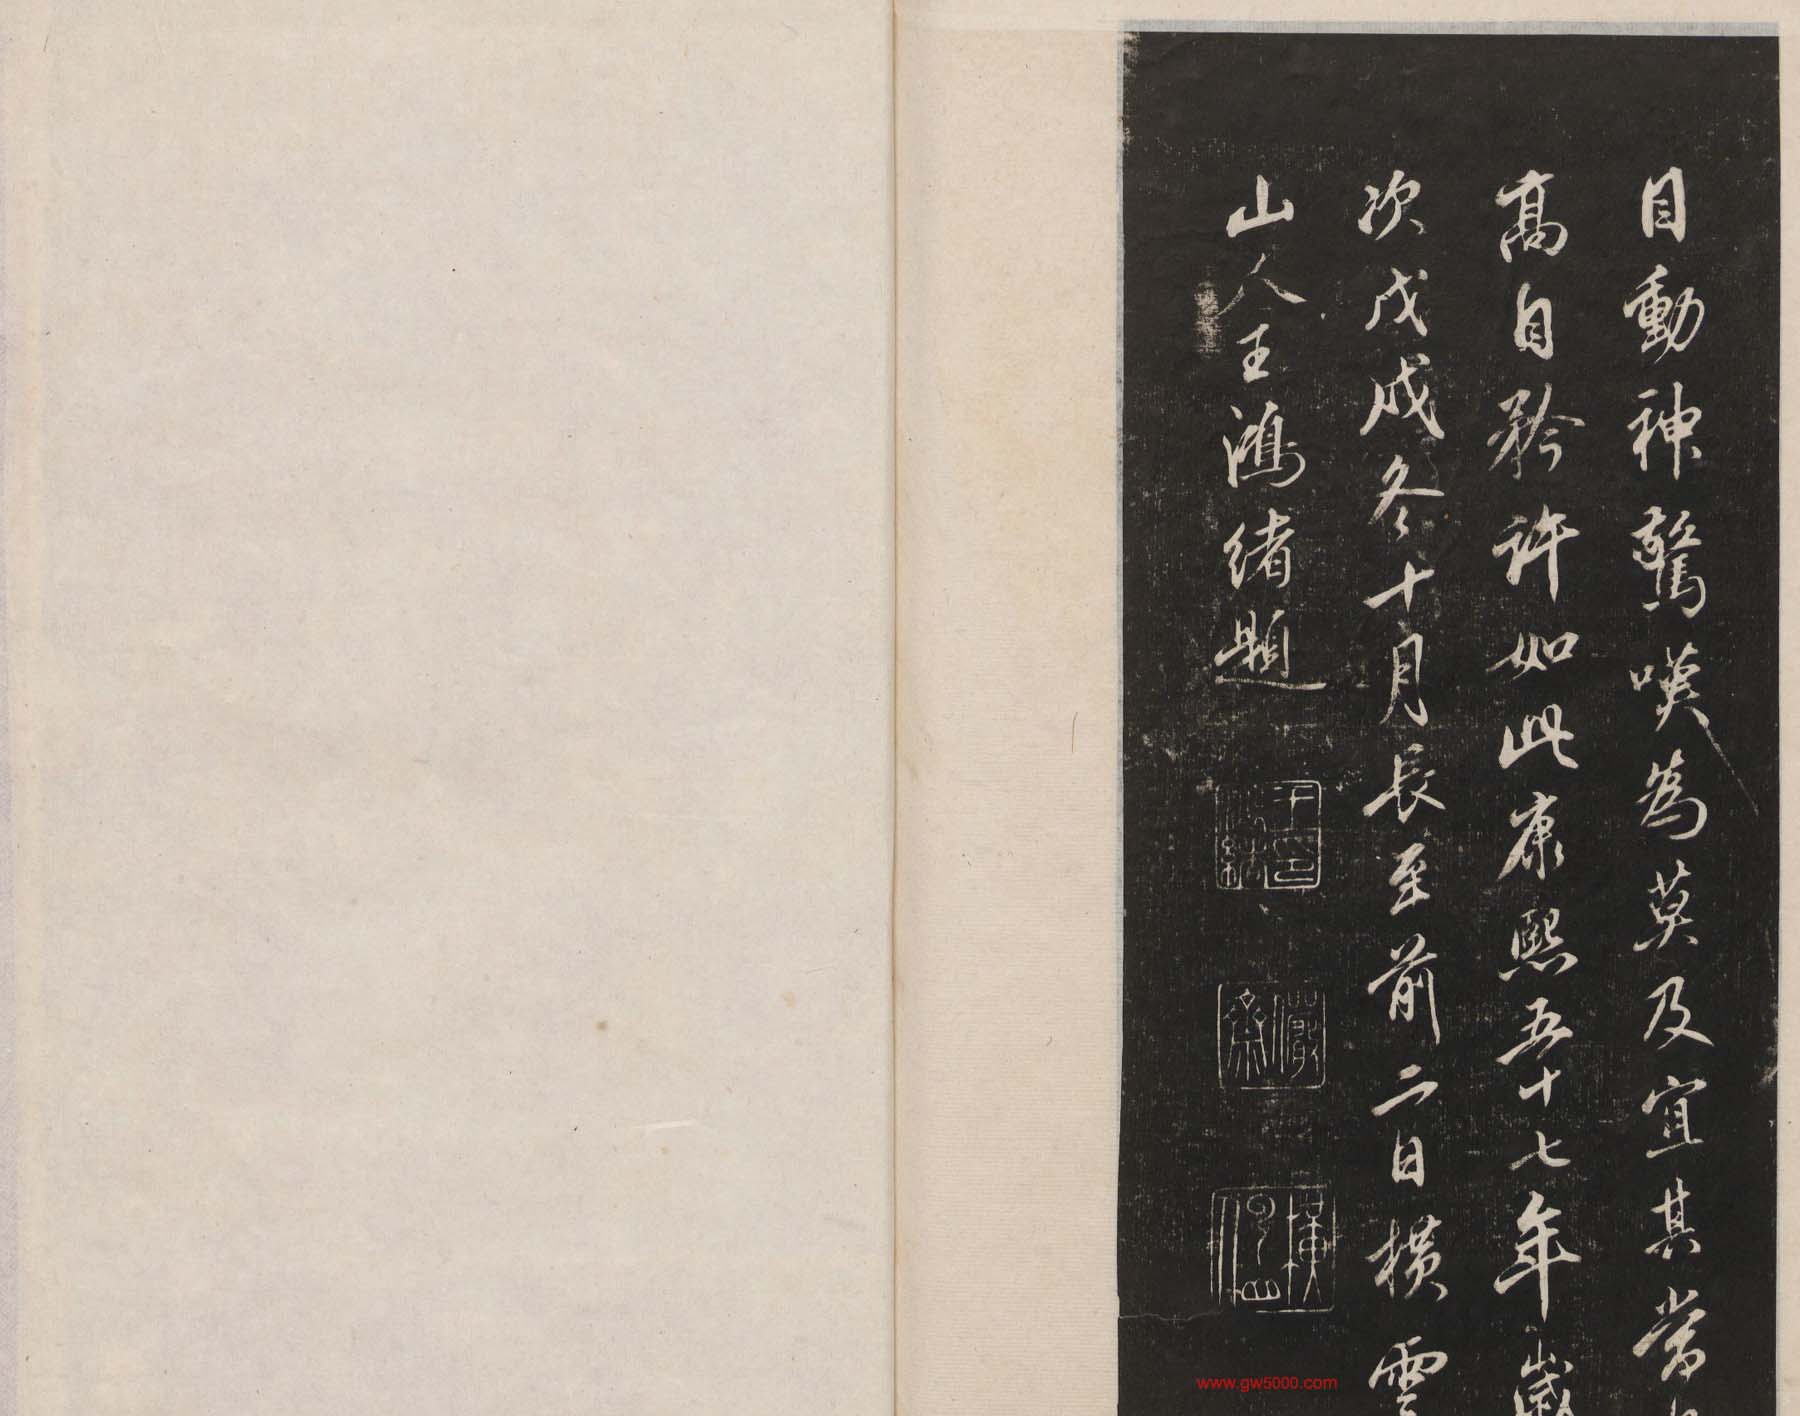 目動神驚嘆為莫及宜其常
高自矜許如此康熙五十七年歲
次戊戌冬十月長至前二日橫雲
山人王鴻緒題
儼齋
www.gw5000.com